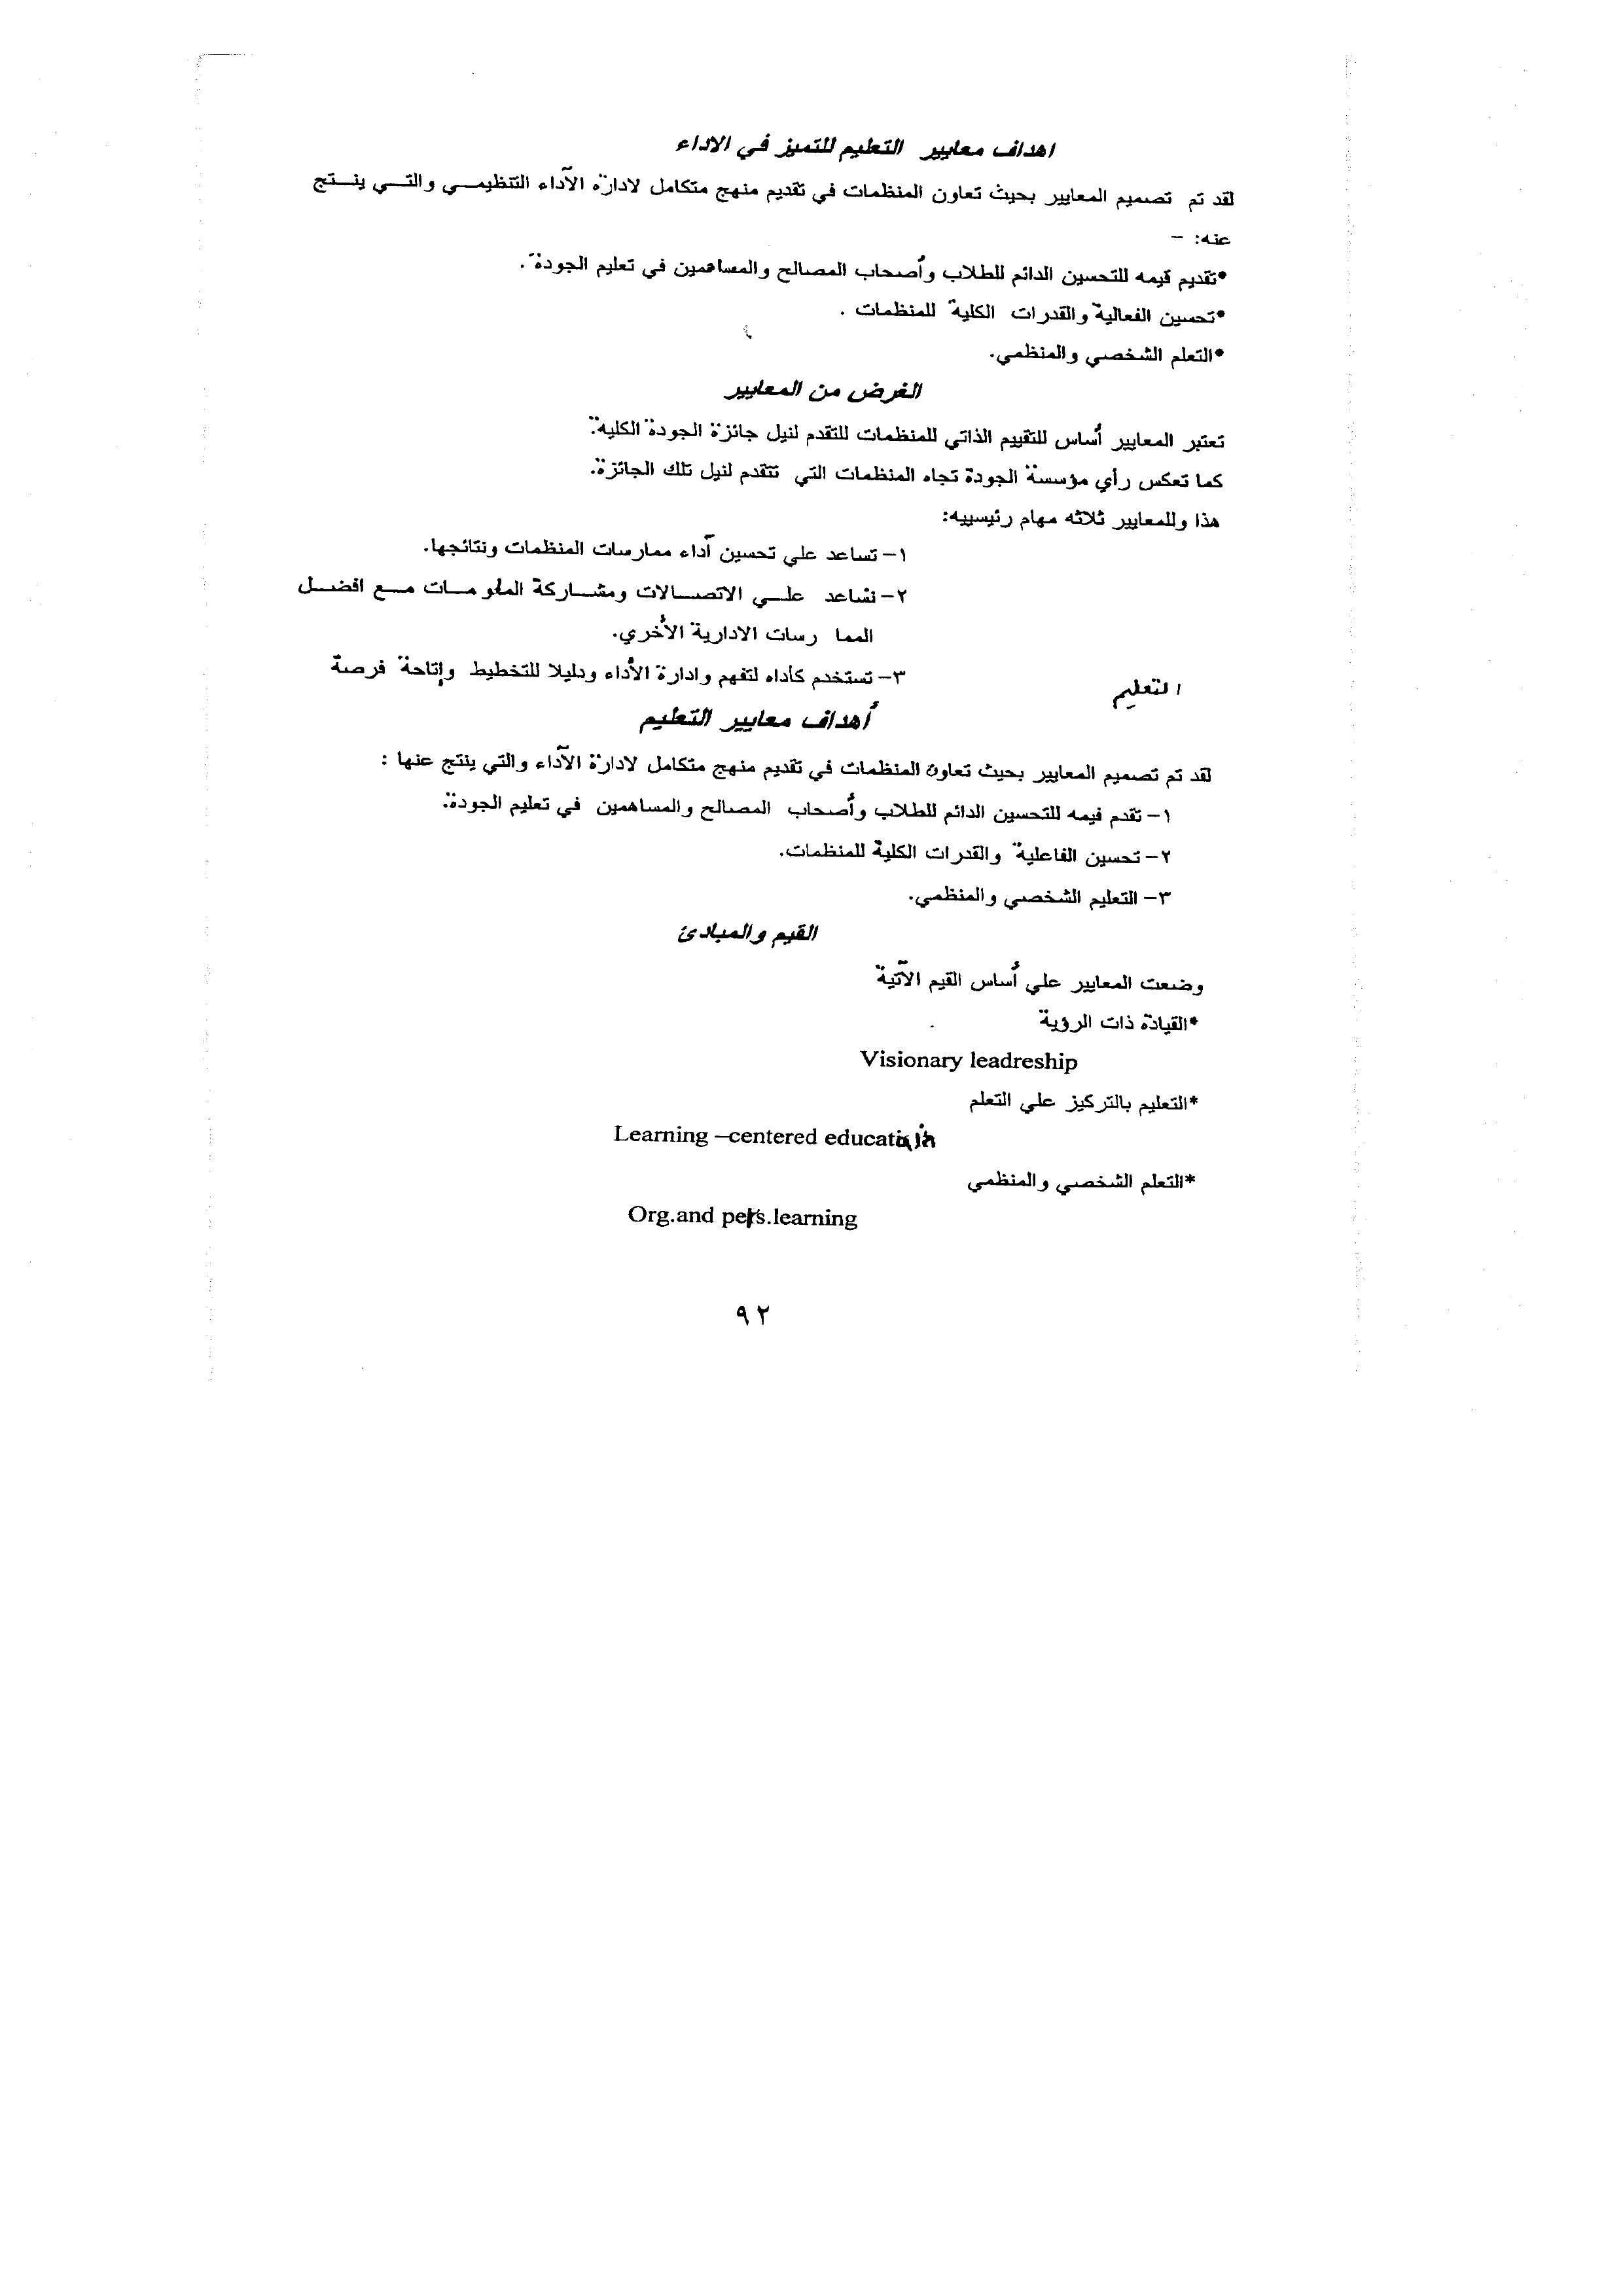 اهداف معايير التعليم للتميز في الاداء
لقد تم تصميم المعايير بحيث تعاون المنظمات في تقديم منهج متكامل لادارة الآداء التنظيمـــي والتـــي ينـــتج
عنه: –
•تقديم قيمه للتحسين الدائم للطلاب وأصحاب المصالح والمساهمين في تعليم الجودة.
•تحسين الفعالية والقدرات الكلية للمنظمات .
•التعلم الشخصي والمنظمي.
الغرض من المعايير
تعتبر المعايير أساس للتقييم الذاتي للمنظمات للتقدم لنيل جائزة الجودة الكلية.
كما تعكس رأي مؤسسة الجودة تجاه المنظمات التي تتقدم لنيل تلك الجائزة.
هذا وللمعايير ثلاثه مهام رئيسييه:
١– تساعد علي تحسين آداء ممارسات المنظمات ونتائجها.
٢– تساعد علـــي الاتصـــالات ومشـــاركة المعلومـــات مـــع افضـــل
المما رسات الادارية الأخري.
٣– تستخدم كأداه لتفهم وادارة الأداء ودليلا للتخطيط وإتاحة فرصة
التعليم
أهداف معايير التعليم
لقد تم تصميم المعايير بحيث تعاون المنظمات في تقديم منهج متكامل لادارة الآداء والتي ينتج عنها :
١– تقدم فيمه للتحسين الدائم للطلاب وأصحاب المصالح والمساهمين في تعليم الجودة.
٢– تحسين الفاعلية والقدرات الكلية للمنظمات.
٣– التعليم الشخصي والمنظمي.
القيم والمبادئ
وضعت المعايير علي أساس القيم الآتية
*القيادة ذات الرؤية
Visionary leadreship
*التعليم بالتركيز علي التعلم
Learning –centered education
*التعلم الشخصي والمنظمي
Org.and pers.learning
٩٢